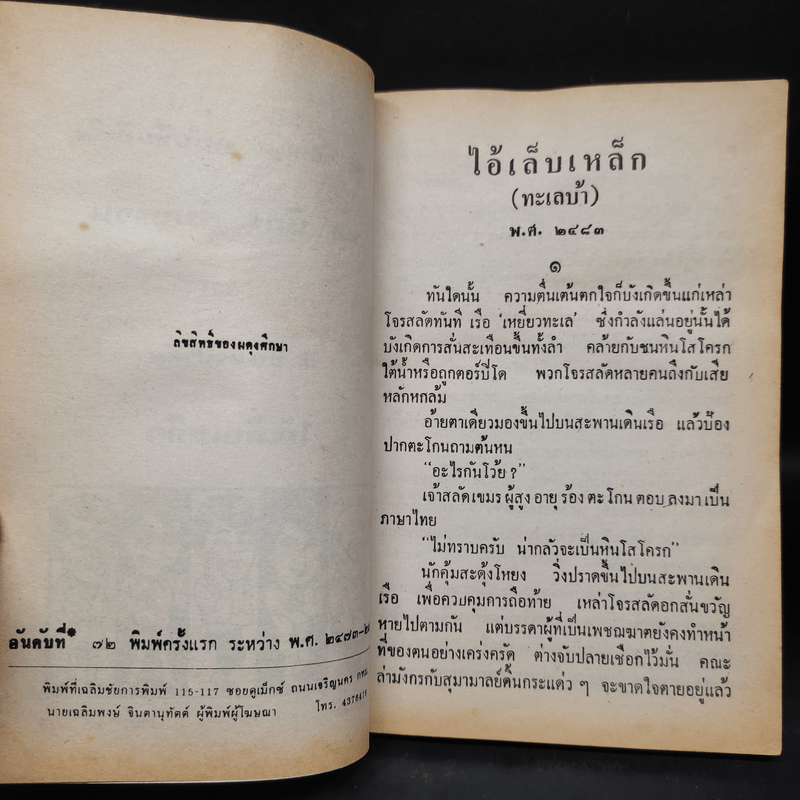 ลิขสิทธิ์ของผดุงศึกษา
อันดับที่ ๗๒ พิมพ์ครั้งแรก ระหว่าง พ.ศ. ๒๔๗๓-๒
พิมพ์ที่เฉลิมชัยการพิมพ์ 115-117 ซอยดูเม็กซ์ ถนนเจริญนคร กทม.
นายเฉลิมพงษ์ จินตานุทัตต์ ผู้พิมพ์ผู้โฆษณา โทร.
ไอ้เล็บเหล็ก
(ทะเลบ้า)
พ.ศ. ๒๔๘๓
๑
ทันใดนั้น ความตื่นเต้นตกใจก็บังเกิดขึ้นแก่เหล่า
โจรสลัดทันที เรือ ‘เหยี่ยวทะเล’ ซึ่งกำลังแล่นอยู่นั้นได้
บังเกิดการสั่นสะเทือนขึ้นทั้งลำ คล้ายกับชนหินโสโครก
ใต้น้ำหรือถูกตอร์ปิโด พวกโจรสลัดหลายคนถึงกับเสีย
หลักหกล้ม
อ้ายตาเดียวมองขึ้นไปบนสะพานเดินเรือ แล้วป้อง
ปากตะโกนถามต้นหน
“อะไรกันโว้ย ?”
เจ้าสลัดเขมร ผู้สูง อายุ ร้อง ตะโกน ตอบ ลงมา เป็น
ภาษาไทย
“ไม่ทราบครับ น่ากลัวจะเป็นหินโสโครก”
นักคุ้มสะดุ้งโหยง วิ่งปราดขึ้นไปบนสะพานเดิน
เรือ เพื่อควบคุมการถือท้าย เหล่าโจรสลัดอกสั่นขวัญ
หายไปตามกัน แต่บรรดาผู้ที่เป็นเพชฌฆาตยังคงทำหน้า
ที่ของตนอย่างเคร่งครัด ต่างจับปลายเชือกไว้มั่น คณะ
ล่ามังกรกับสุมามาลย์ดิ้นกระแด่ว ๆ จะขาดใจตายอยู่แล้ว